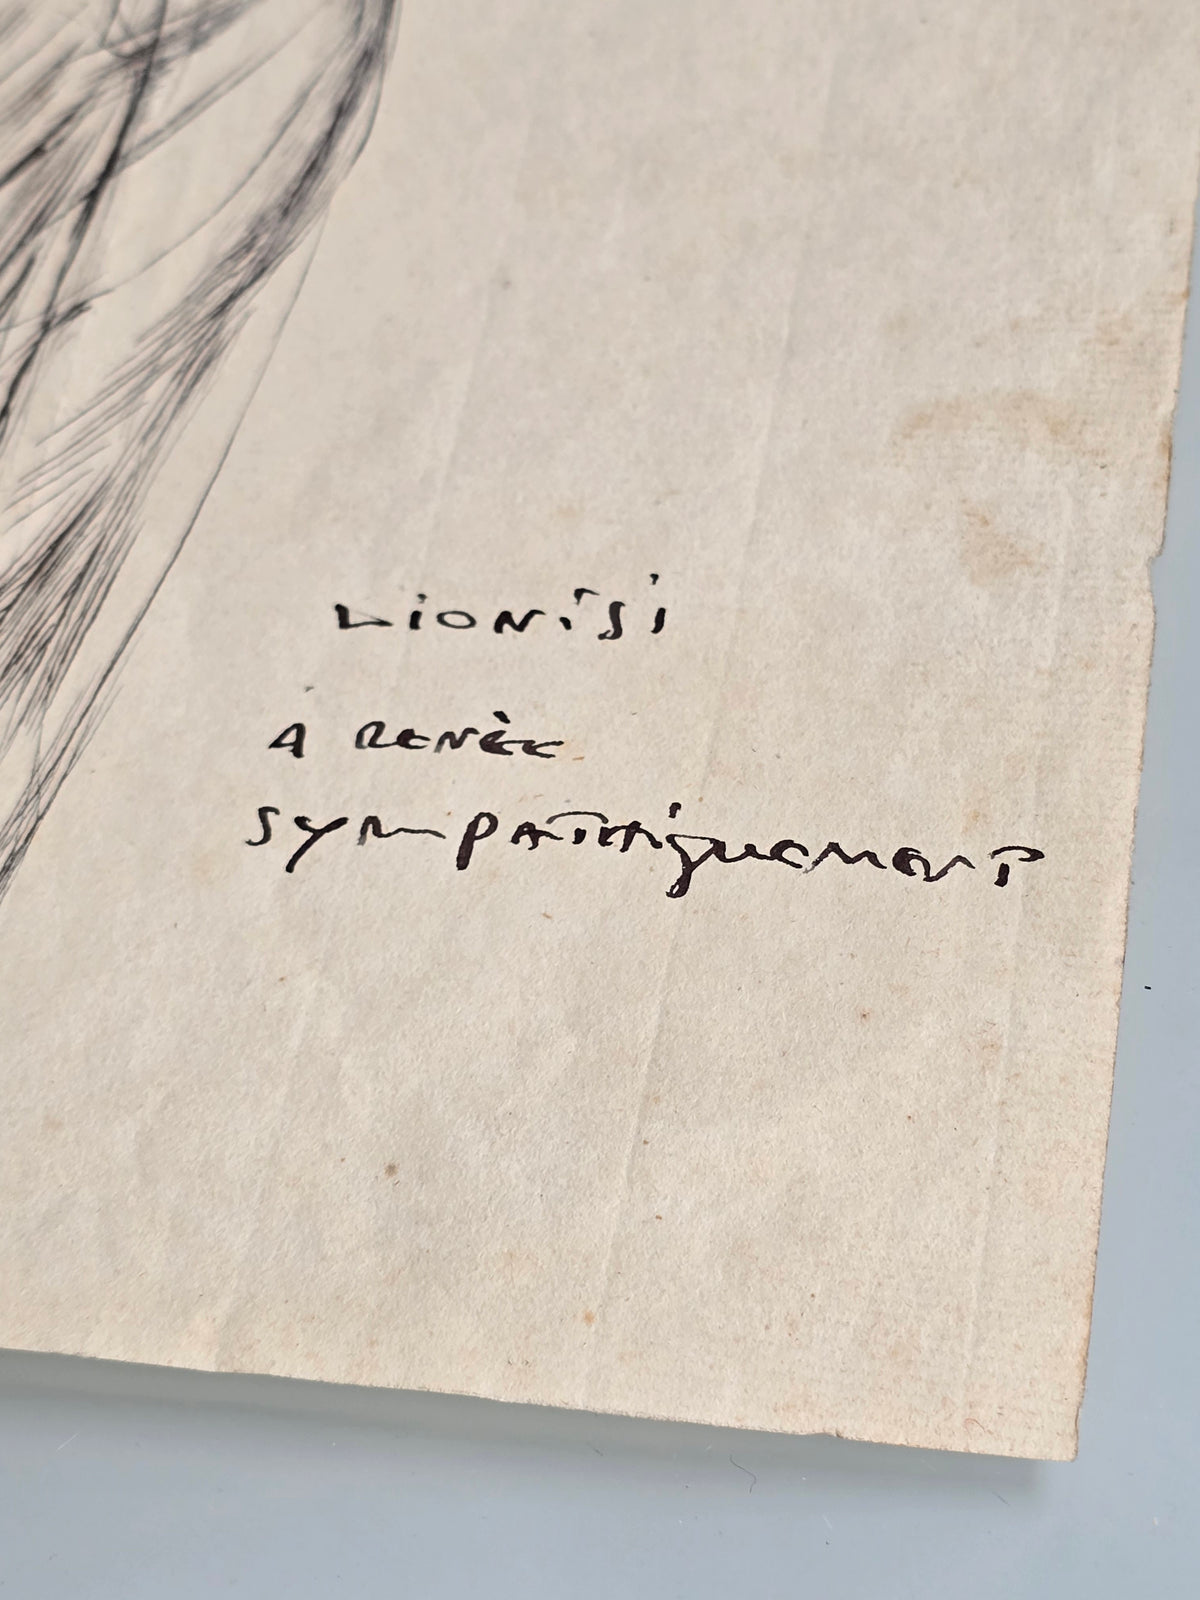 Dionisi
A Renèe
sympathiquement